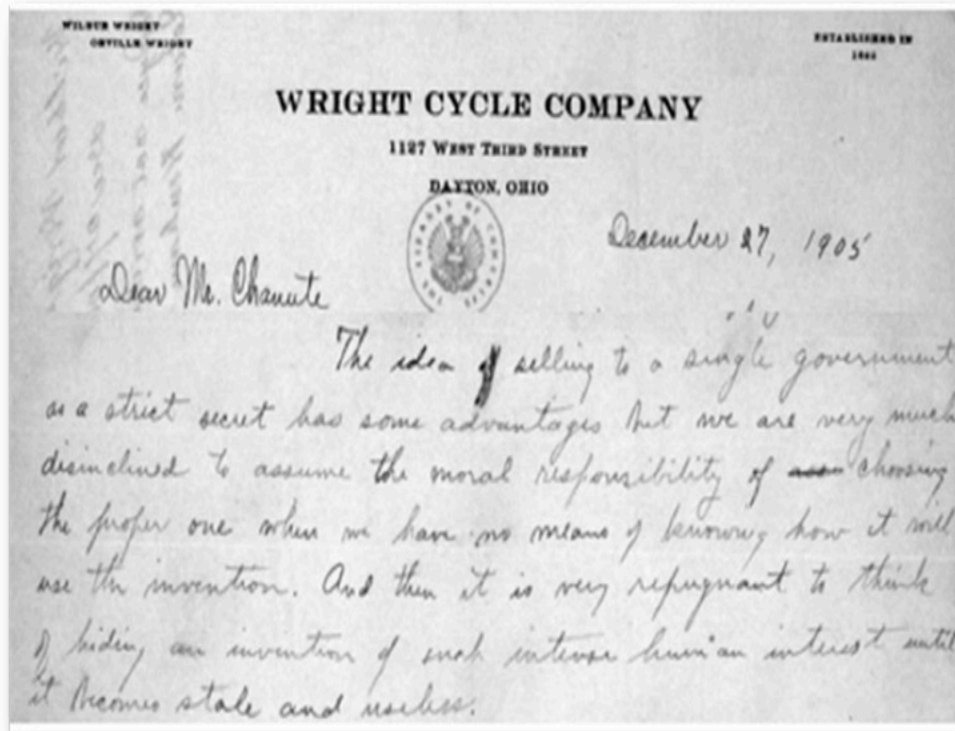 WILBUR WRIGHT
ORVILLE WRIGHT
ESTABLISHED IN
WRIGHT CYCLE COMPANY
1127 WEST THIRD STREET
DAYTON, OHIO
December 27, 1905
Dear Mr. Chanute
The idea of selling to a single government
as a strict secret has some advantages but we are very much
disinclined to assume the moral responsibility of choosing
the proper one when we have no means of knowing how it will
use the invention. And then it is very repugnant to think
of hiding an invention of such intense human interest until
it becomes stale and useless.